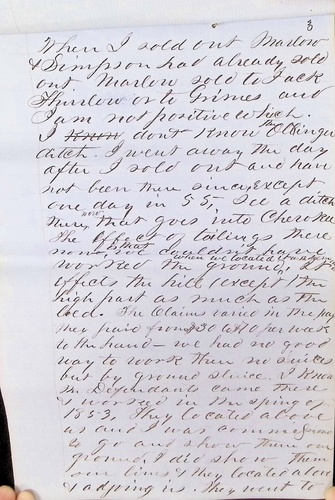 3
When I sold out Marlow
& Simpson had already sold
out Marlow sold to Jack
or to Grimes and
I am not positive which.
I know dont know the Olinger
ditch. I went away the day
after I sold out and have
not been there since, except
one day in 55, See a ditch
there, now that goes into Cherokee
The effect of tailings there
now, is that we couldnt have
worked the ground, when we located It
effects the hill (except) the
high part as much as the
bed. The Claims varied in the pay
they paid from $30 to $10 per week
to the hand - we had no good
way to work then no sluices
but by ground sluice. I know
Defendants came there
I worked in the Spring of
1853. They located above
us and I was
to go and show them our
ground, I did show them
our lines & they located above
& adjoing us. They went to